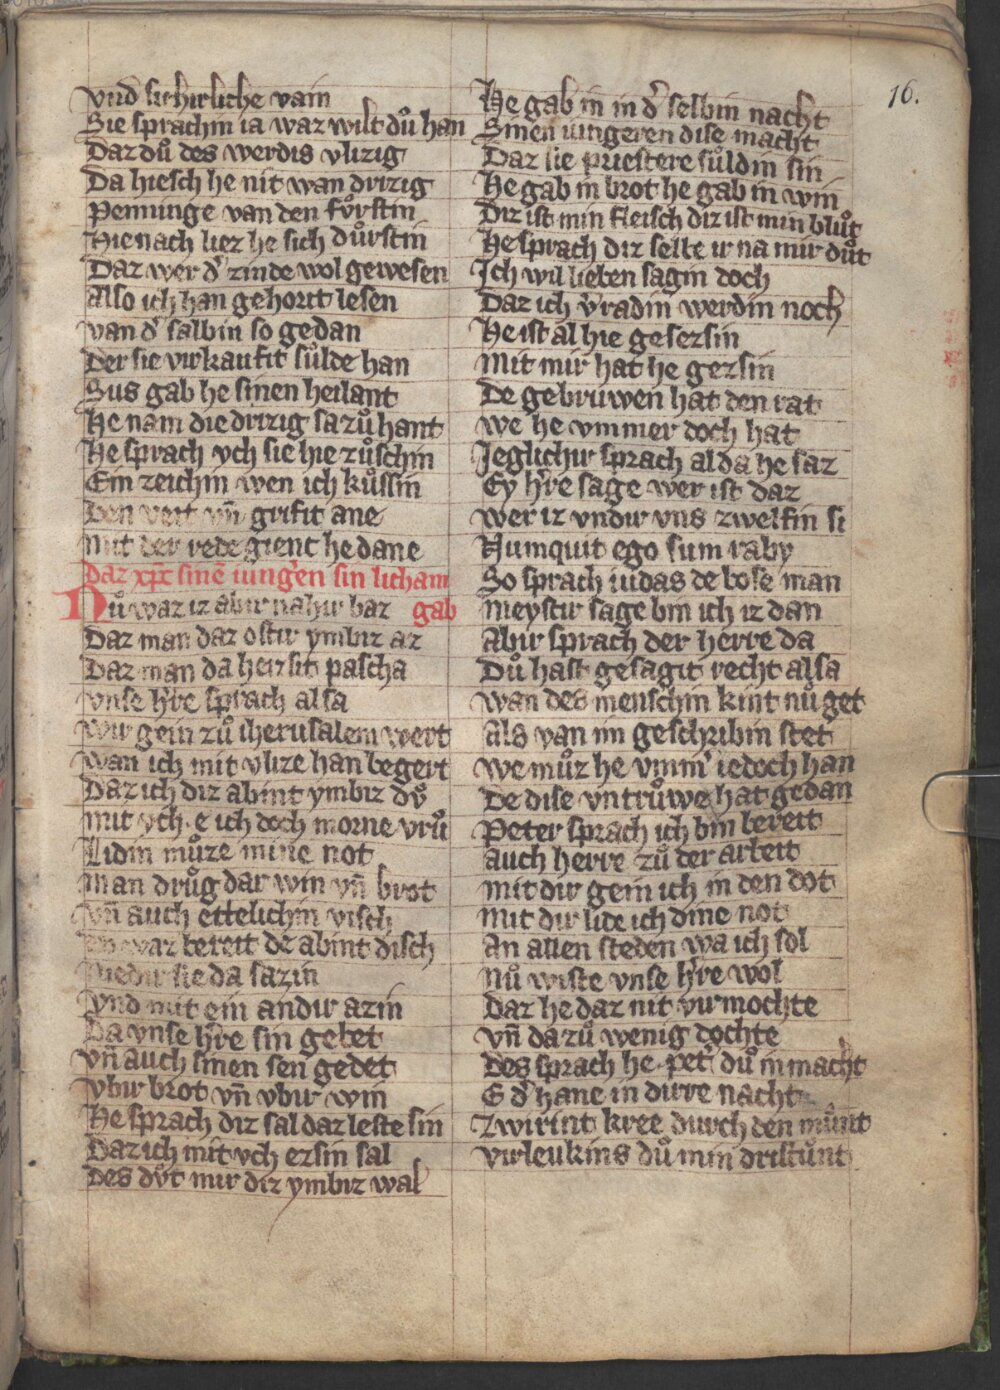 16.
vnd sichirliche vain
Sie sprachin ia waz wilt dů han
Daz dů des werdis vlizig
Da hiesch he nit wan drizig
Penninge van den fůrstin
Hie nach liez he sich důrstin
Daz wer dˀ zinde wol gewesen
Also ich han gehortt lesen
van dˀ salbin so gedan
Der sie virkaufit sůlde han
Sus gab he sinen heilant
He nam die drizig sa zů hant
He sprach vch sie hie zůschin
Ein zeichin wen ich kůssin
Den veit vn̄ grifit ane
mit der rede gienc he dane
Daz xp̄c sinē iungˀen sin licham
Nů waz iz abir nahir baz gab
Daz man daz ostir ymbiz az
Daz man da heizsit pascha
vnse hˀre sprach alsa
wir gein zů iherusalem wert
wan ich mit vlize han begert
Daz ich diz abint ymbiz dů
mit vch e ich doch morne vrů
Lidin můze mine not
man drůg dar win vn̄ brot
vn̄ auch ettelichin visch
waz bereit de abint disch
Niedir sie da sazin
vnd mit ein andir azin
Da vnse hˀre sin gebet
vn̄ auch sinen sen gedet
vbir brot vn̄ vbir win
He sprach diz sal daz leste sin
Daz ich mit vch ezsin sal
Des důt mir diz ymbiz wal
He gab in in dˀ selbin nacht
Sinen iungeren dise macht
Daz sie priestere sůldin sin
He gab in brot he gab in win
Diz ist min fleisch diz ist min blůt
He sprach diz selbe ir na mir důt
Ich wil lieben sagin doch
Daz ich vˀradin werdin noch
He ist al hie gesezsin
mit mir hat he gezsin
De gebruwen hat den rat
we he vmmer doch hat
Jeglichir sprach alda he saz
Ey hˀre sage wer ist daz
wer iz vndir vns zwelfin si
Numquit ego sum raby
So sprach iudas de bose man
meystir sage bin ich iz dan
Abir sprach der herre da
Dů hast gesagit recht alsa
wan des menschin kint nů get
Als van im geschribin stet
we můz he vmmˀ iedoch han
De dise vntrůwe hat gedan
Peter sprach ich bin bereit
auch herre zů der arbeit
mit dir gein ich in den dot
mit dir lide ich dine not
an allen steden wa ich sol
nů wiste vnse hˀre wol
Daz he daz nit virmochte
vn̄ da zů wenig dochte
Des sprach he petˀ dů in macht
E dˀ hane in dirre nacht
Zwirint kree durch den můnt
virleukins dů min dristůnt